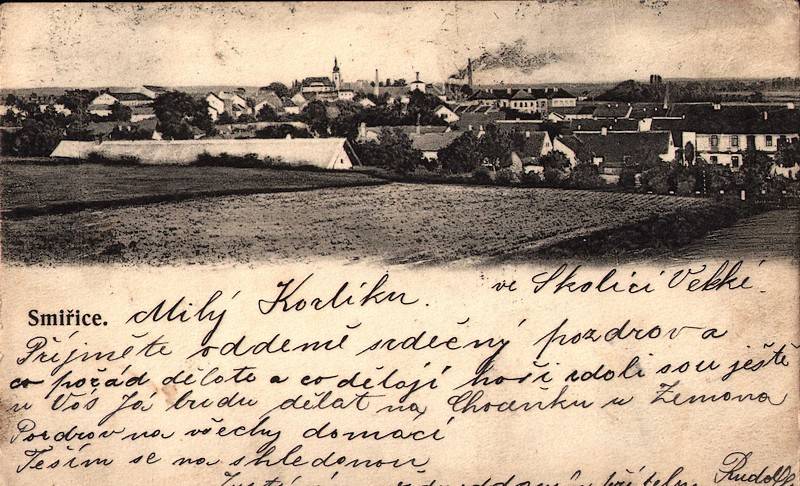 Smiřice.
Milý Korliku. ve Skolici Velké.
Příjměte oddemě srdečný pozdrov a
co pořád dělote a co dělojí hoři zdoli sou ještě
u Vós Já budu dělat na Chocenku u Zemona
Pozdrov na všechy domací
Tešim se na shledonou
Rudolf